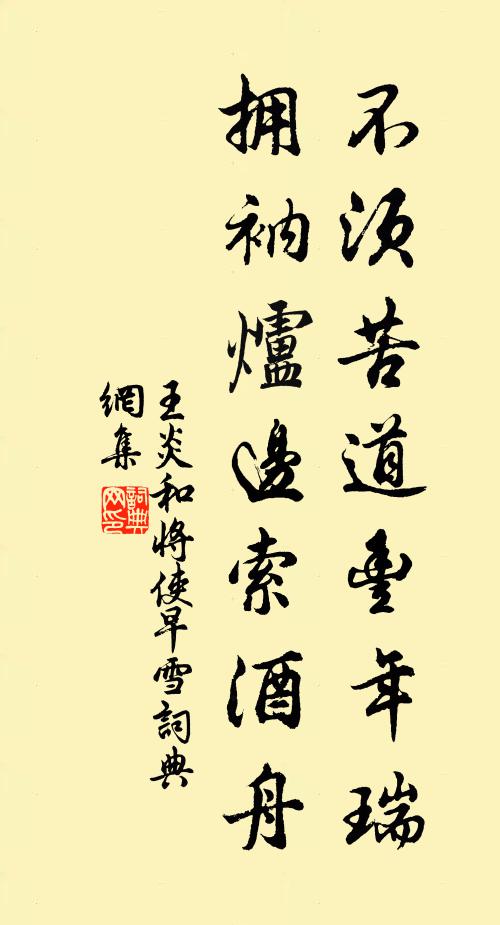 不須苦道豊年瑞
拥衲爐邊索酒舟
王炎和將使早雪詞典
網集
詞典
网印